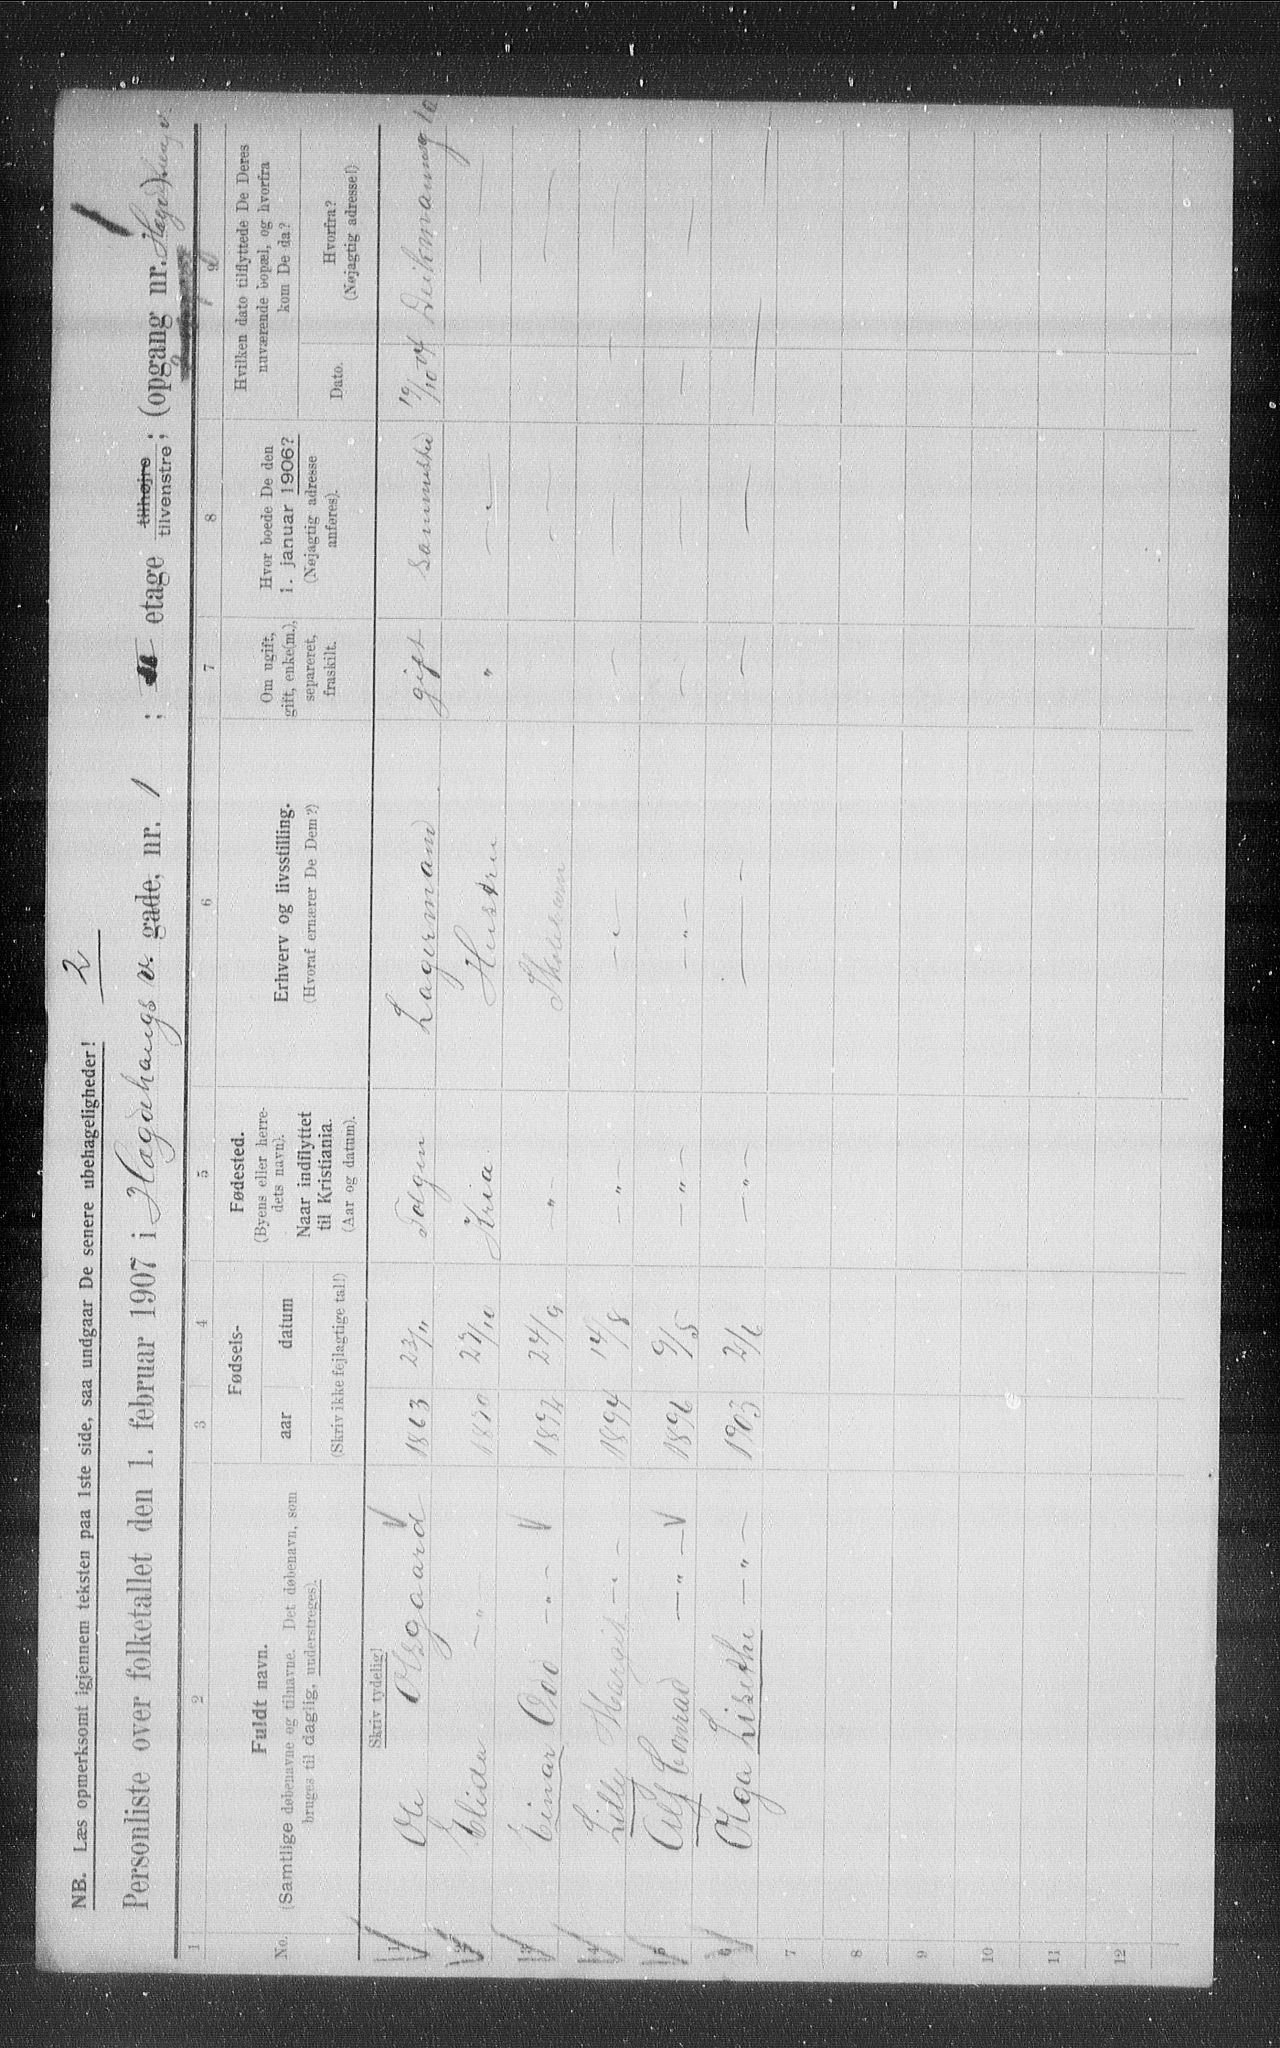 NB. Læs opmerksomt igjennem teksten paa 1ste side, saa undgaar De senere ubehageligheder!
2
Personliste over folketallet den 1. februar 1907 i Hægdehaugs v. gade, nr. 1 ; etage tilhøjre tilvenstre; (opgang nr. )
1 2 3 4 5 6 7 8 9
No.
Fuldt navn.
(Samtlige døbenavne og tilnavne. Det døbenavn, som
bruges til daglig, understreges).
Fødsels-
aar datum
(Skriv ikke fejlagtige tal!)
Fødested.
(Byens eller herre-
dets navn).
Naar indflyttet
til Kristiania.
(Aar og datum).
Erhverv og livsstilling.
(Hvoraf ernærer De Dem?)
Om ugift,
gift, enke(m.),
separeret,
fraskilt.
Hvor boede De den
1. januar 1906?
(Nøjagtig adresse
anføres).
Hvilken dato tilflyttede De Deres
nuværende bopæl, og hvorfra
kom De da?
Dato.
Hvorfra?
(Nøjagtig adresse!)
Skriv tydelig!
1 Ole Olsgaard 1863 23/11 Tolgen Lagermand gift sammested 19/10 04
2 Elida — " 1870 Kria. Hustru " — " —
3 Einar Odd — " — 1892 24/9 — " —
4 Lilly Margit — " — 1894 14/8 — " — — " — —
5 Alf Conrad — " — 1896 9/5 — " — — " — —
6 Olga Lisethe — " — 1903 2/6 — " — — — —
7
8
9
10
11
12